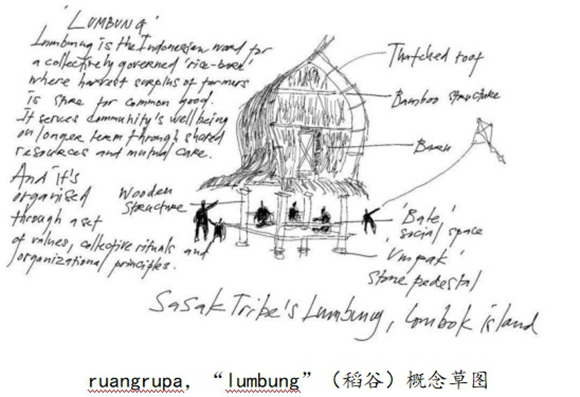 'LUMBUNG'
Lumbung is the Indonesian word for
a collectively governed 'rice-barn'
where harvest surplus of farmers
is store for common good.
It serves community's well being
on longer term through shared
resources and mutual care.
And it's
organised
through a set
of values, collective rituals and
organizational principles.
Thatched roof
Bamboo structure
Baru
Wooden
structure
'Bale'
social space
'Umpak'
stone pedestal
Sasak Tribe's Lumbung, Lombok island
ruangrupa，“lumbung”（稻谷）概念草图